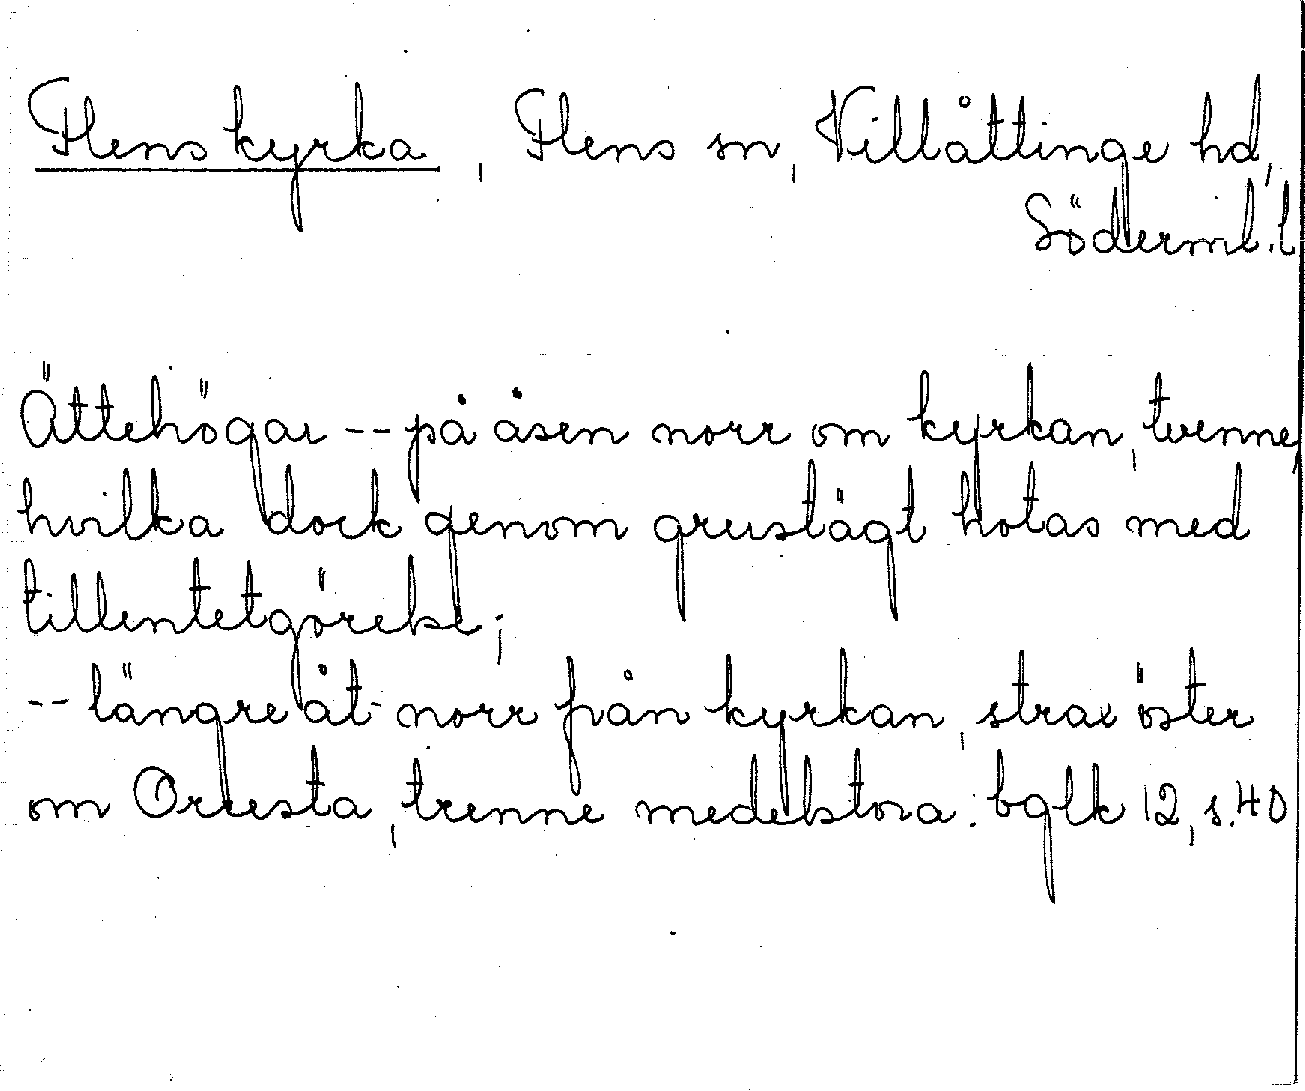 Flens kyrka, Flens sn, Villåttinge hd,
Söderml. l
Ättehögar -- på åsen norr om kyrkan, tvenne,
hvilka dock genom grustägt hotas med
tillentetgörelse;
-- längre åt norr från kyrkan, strax öster
om Orresta, trenne medelstora. bglk 12, s. 40